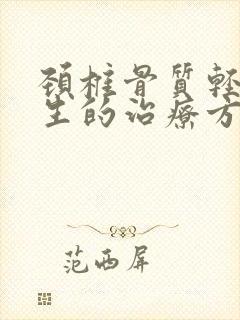 頚椎骨質輕
生的治療方
范西屏